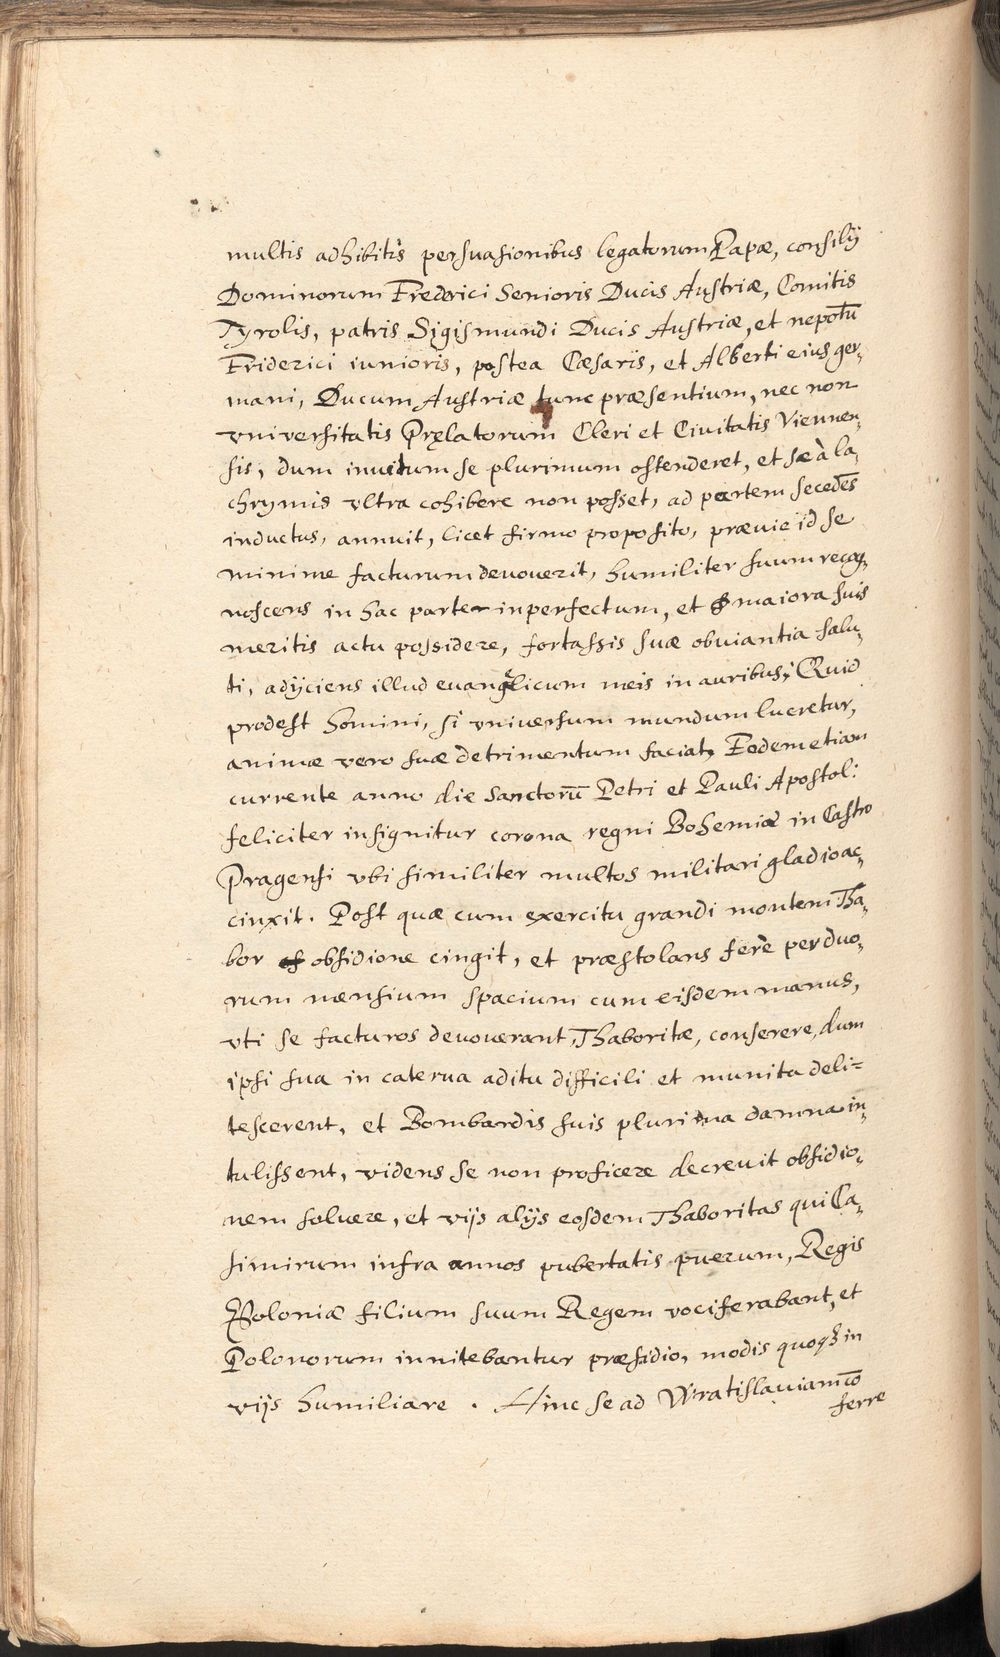 multis adhibitis persuasionibus legatorum Papæ, consilij
Dominorum Frederici Senioris Ducis Austriæ, Comitis
Tyrolis, patris Sigismundi Ducis Austriæ, et nepotū
Friderici iunioris, postea Cæsaris, et Alberti eius ger,
mani, Ducum Austriæ tunc præsentium, nec non
vniversitatis Pręlatorum Cleri et Ciuitatis Viennen,
sis, dum inuitum se plurimum ostenderet, et se à la,
chrymis vltra cohibere non posset, ad partem secedēs
inductus, annuit, licet firmo proposito, præuie id se
minime facturum deuouerit, humiliter suum recog,
noscens in hac parte inperfectum, et maiora suis
meritis actu possidere, fortassis suæ obuiantia salu,
ti, adijciens illud euangelicum meis in auribus; Quid
prodest homini, si vniuersum mundum lucretur,
animæ vero suæ detrimentum faciat, Eodem etiam
currente anno die Sanctorū Petri et Pauli Apostol:
feliciter insignitur corona regni Bohemiæ in Castro
Pragensi vbi similiter multos militari gladio ac,
cinxit. Post quæ cum exercitu grandi montem Tha,
bor obsidione cingit, et præstolans ferè per duo,
rum mensium spacium cum eisdem manus,
vti se facturos deuouerant, Thaboritæ, conserere, dum
ipsi sua in caterua aditu difficili et munita deli=
tescerent, et Bombardis suis plurima damna in,
tulissent, videns se non proficere decreuit obsidio,
nem soluere, et vijs alijs eosdem Thaboritas qui Ca,
simirum infra annos pubertatis puerum, Regis
Poloniæ filium suum Regem vociferabant, et
Polonorum innitebantur præsidio, modis quoqꝫ in
vijs humiliare. Hinc se ad Wratislauiam
ferre